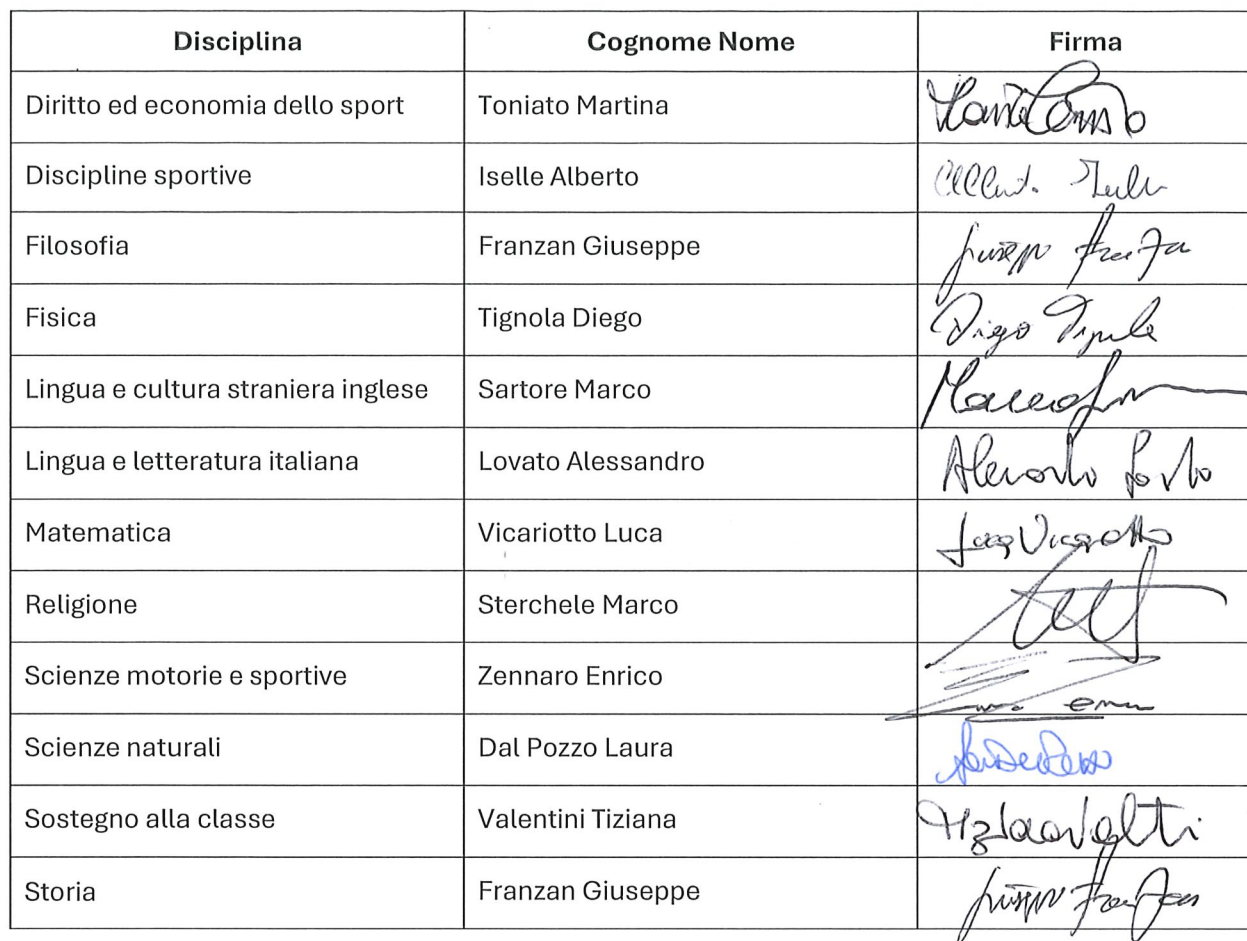 Disciplina Cognome Nome Firma
Diritto ed economia dello sport Toniato Martina
Discipline sportive Iselle Alberto
Filosofia Franzan Giuseppe
Fisica Tignola Diego Diego
Lingua e cultura straniera inglese Sartore Marco
Lingua e letteratura italiana Lovato Alessandro
Matematica Vicariotto Luca
Religione Sterchele Marco
Scienze motorie e sportive Zennaro Enrico
Scienze naturali Dal Pozzo Laura
Sostegno alla classe Valentini Tiziana
Storia Franzan Giuseppe